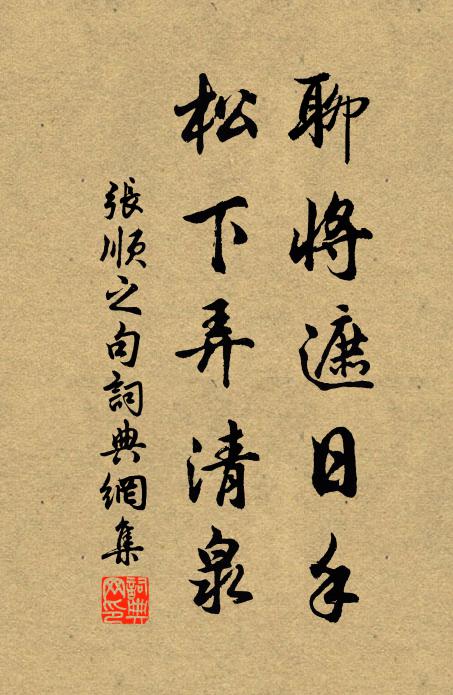 聊將遮日手
松下弄清泉
張順之句詞典網集
詞典網印